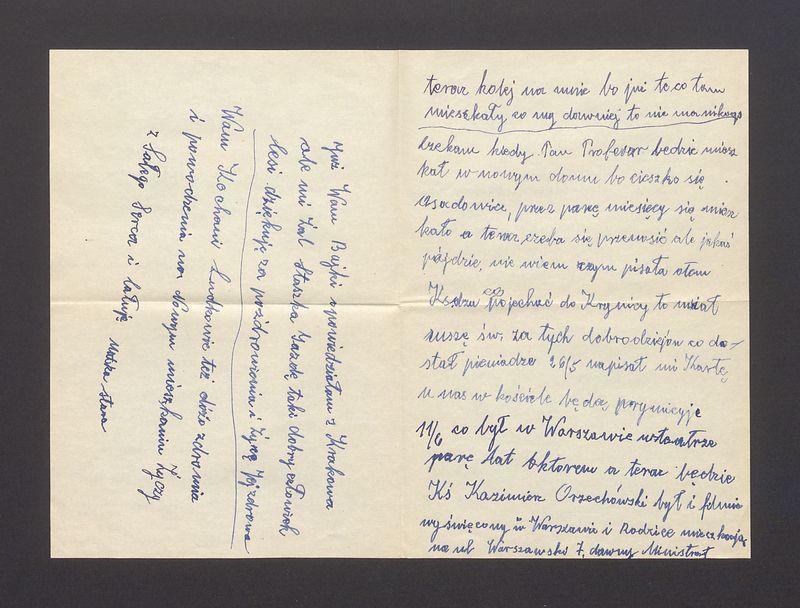 teraz kolej na mnie bo już te co tam
mieszkały co my dawniej to nie ma nikogo
czekam kiedy Pan Profesor będzie miesz
kał w nowym domu bo cieszko się
osodowice, przez parę miesięcy się miesz
kało a teraz czeba się przenosić ale jakoś
pójdzie, nie wiem czym pisała otem
Ksdza co pojechać do Krynicy to miał
suszę św. za tych dobrodziejów co do-
stał pieniadze 26/5 napisał mi Kartę
u nas w kościele będą prymicyje
11/6 co był w Warszawie
parę lat oktorem a teraz będzie
Kś Kazimierz Orzechówski był i
wyświęcony w Warszawie i Rodzice mieszkają
na ul Warszawski 7, dawny
już Wam Bajki opowiedziałam z Krakowa
ale mi żal Staszka Gazdę taki dobry człowiek
Lesi dziękuję za pozdrowienia i życzę Jej zdrowa
Wam Kochani Ludkowie też dóżo zdrowia
i powodzenia na Nowym mieszkaniu życzy
z Całego Serca i całuję Matka stara